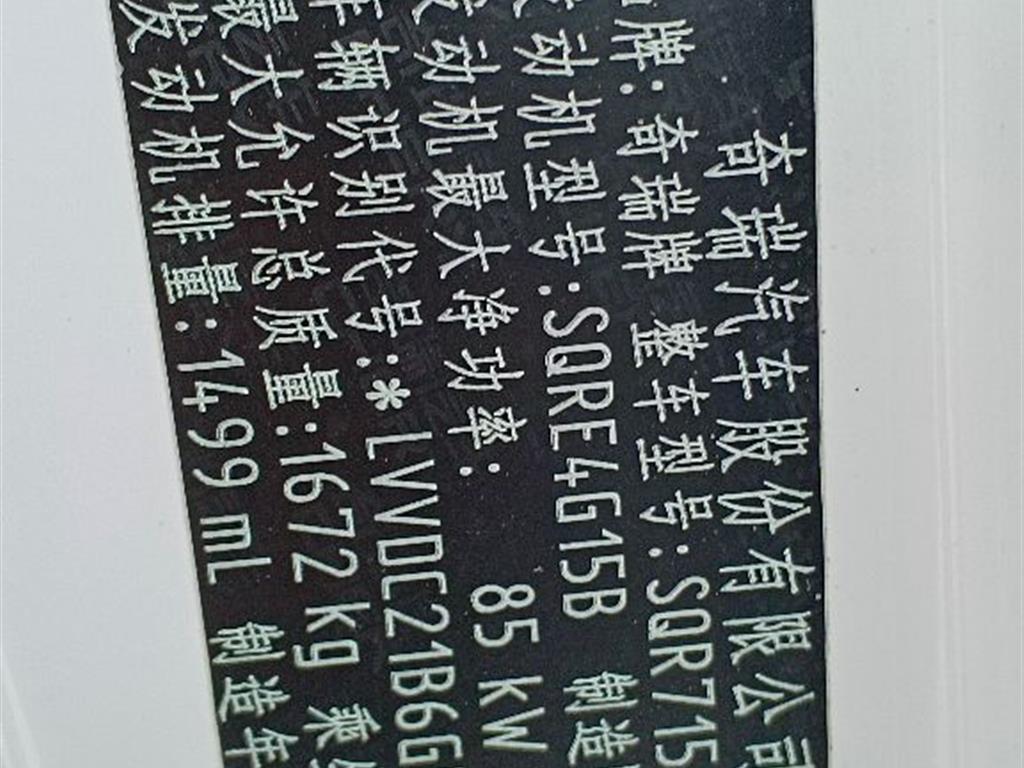 奇瑞汽车股份有限公司
牌:奇瑞牌 整车型号:SQR715
动机型号:SQRE4G15B 制造
动机最大净功率: 85 kW
车辆识别代号:*LVVDC21B6G
最大允许总质量:1672kg 乘
发动机排量:1499mL 制造年